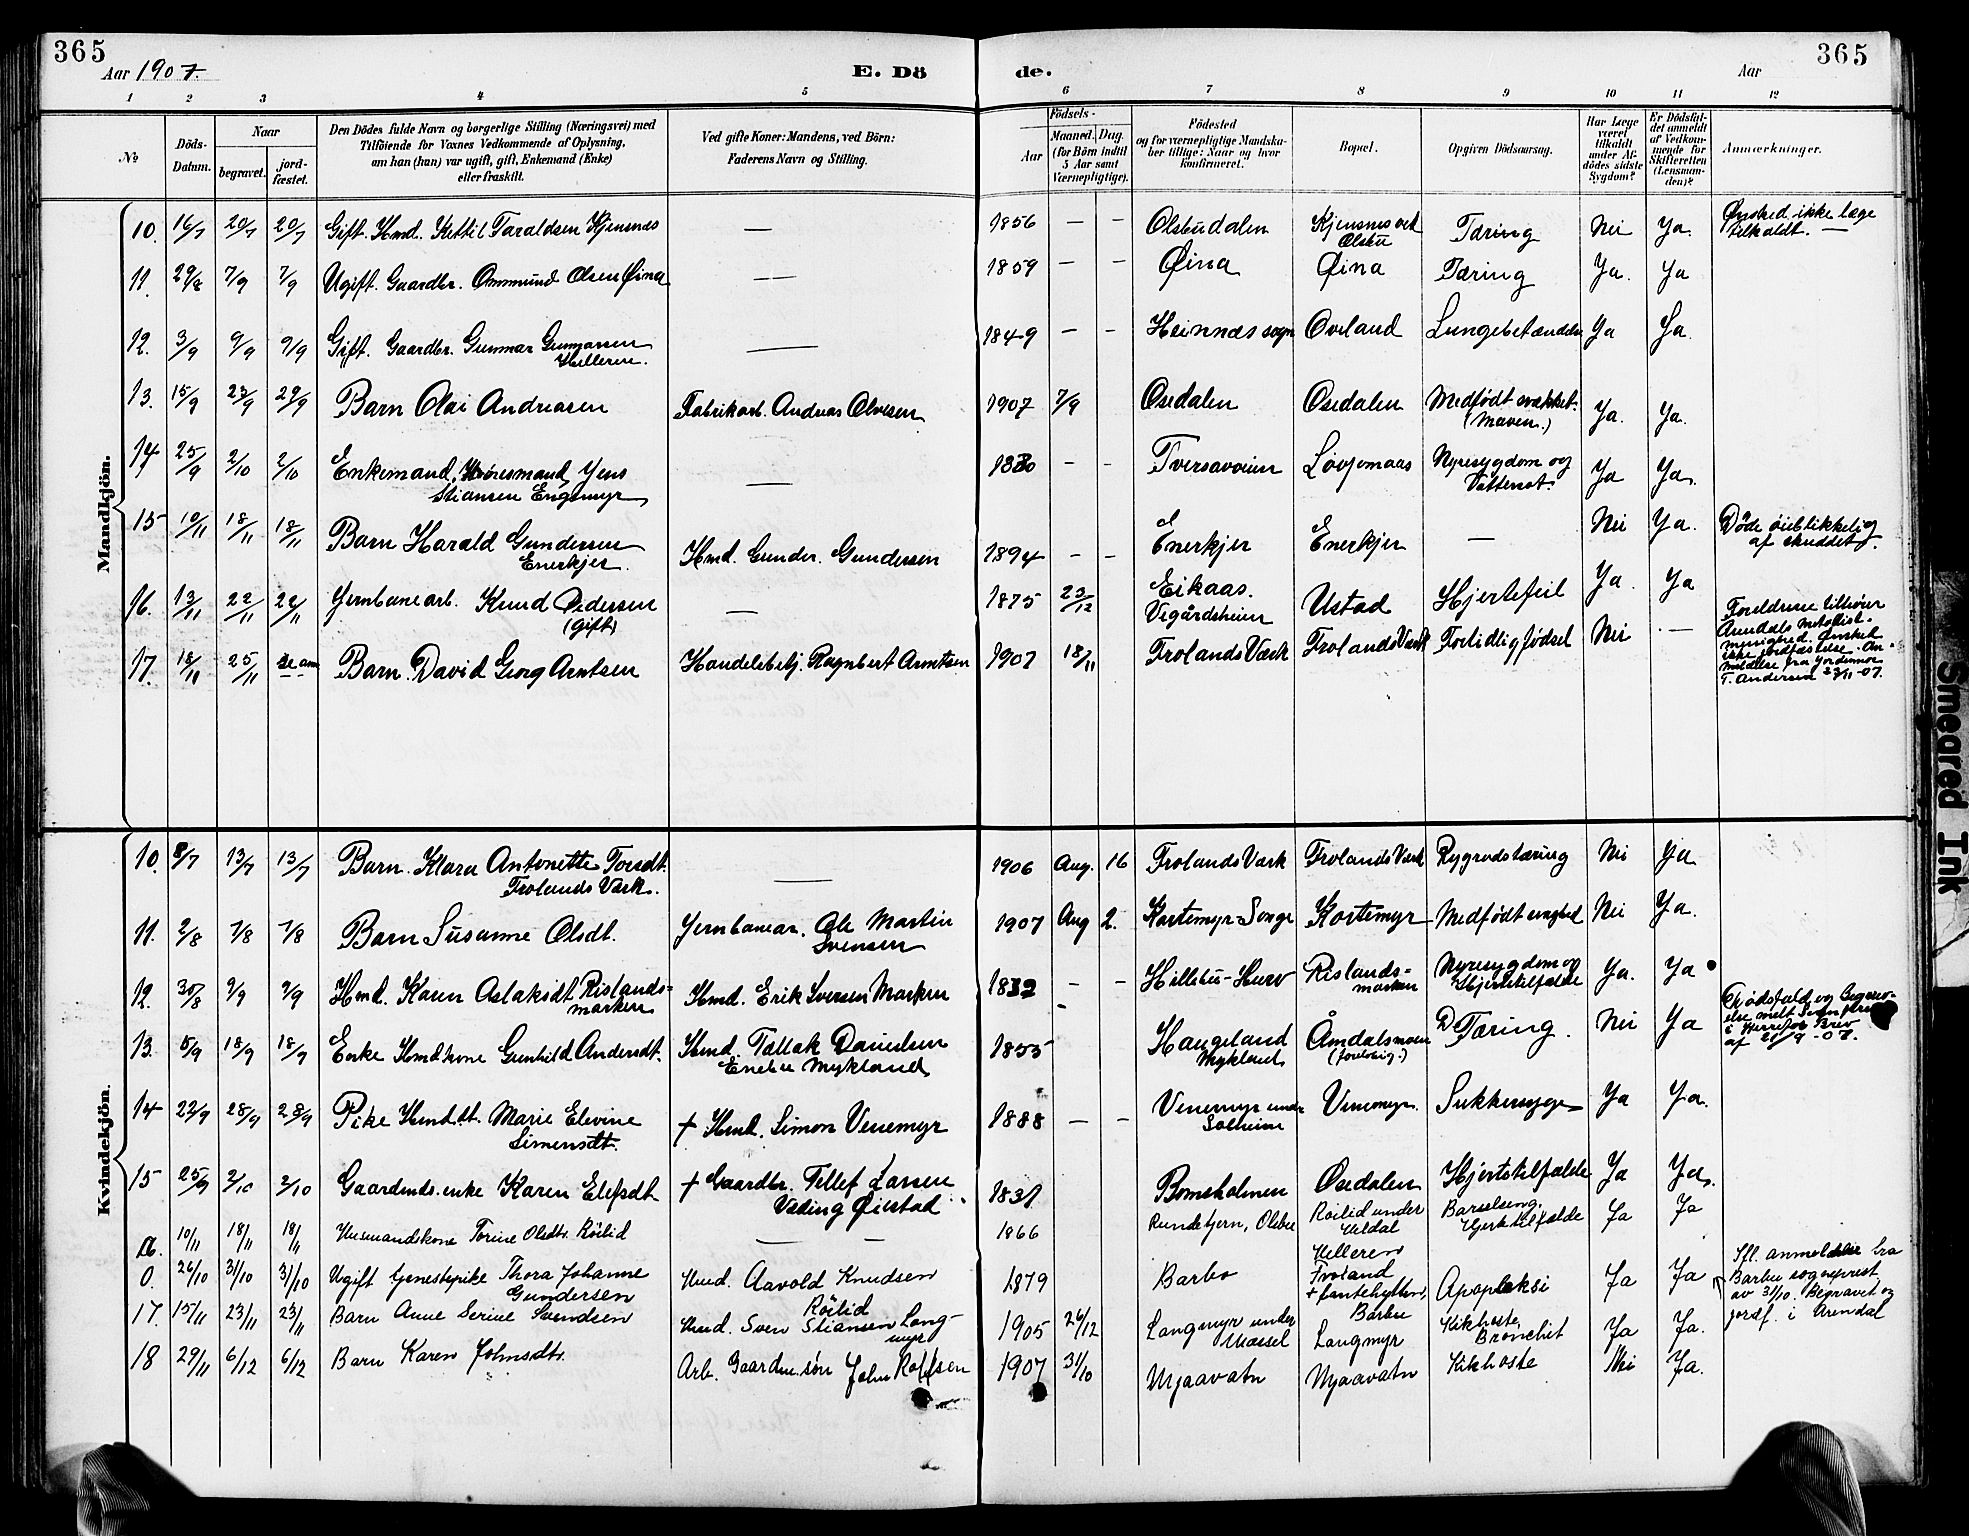 365
365
Aar 1907.
E. Dö
de.
Aar
1 2 3 4 5 6 7 8 9 10 11 12
No
Döds-Datum.
Naar
begravet.
jord-fæstet.
Den Dödes fulde Navn og borgerlige Stilling (Næringsvei) med
Tilföiende for Voxnes Vedkommende af Oplysning,
om han (hun) var ugift, gift, Enkemand (Enke)
eller fraskilt.
Ved gifte Koner: Mandens, ved Börn:
Faderens Navn og Stilling.
Födsels-
Aar
Maaned. Dag.
(for Börn indtil
5 Aar samt
Værnepligtige).
Födested
og for værnepligtige Mandska-
ber tillige: Naar og hvor
konfirmeret.
Bopæl.
Opgiven Dödsaarsag.
Har Læge
været
tilkaldt
under Af-
dödes sidste
Sygdom?
Er Dödsfal-
det anmeldt
af Vedkom-
mende for
Skifteretten
(Lensman-
den)?
Anmærkninger.
Mandkjön.
10. 16/7 20/7 20/7 Gift. Hmd. Kittil Taraldsen Kjensnes — 1856 — — Olsbudalen Kjensnes ved Olsbu Tæring Nei Ja. Ønsked ikke læge tilkaldt. —
11. 29/8 7/9 7/9 Ugift. Gaardbr. Ommund Olsen Øina — 1859 — — Øina Øina Tæring Ja. Ja
12. 3/9 9/9 9/9 Gift. Gaardbr. Gunnar Gunnarsen Hilleren. — 1849 — — Heinnæs sogn Oveland Lungebetændelse Ja Ja.
13. 15/9 23/9 29/9 Barn Olai Andreasen Fabrikarb. Andreas Olvesen 1907 7/9 Osedalen Osedalen Medfödt svækket. (Maven.) Ja. Ja.
14 25/9 2/10 2/10 Enkemand, Jens Stiansen Engemyr — — — Nyresygdom og Vattersot. Ja Ja.
15 10/11 18/11 18/11 Barn Harald Gundersen Enerkjer. Hmd. Gunder Gundersen 1894 — — Enerkjer Enerkjer — Nei Ja. Døde øieblikkelig af skuddet.
16. 13/11 22/11 22/11 Jernbanearb. Knud Pedersen (Gift) — 1875 23/12 Eikaas. Vegårdsheien Ustad Hjertefeil Ja. Ja
17. 18/11 25/11 se anm Barn. David Georg Arntsen Handelsbetj. Raynbert Arntsen 1907 18/11 Frolands Værk Frolands Værk Fortidlig fødsel Nei — Foreldrene tilhører
Arendals Metodist-
menighed. Ønsket
ikke jordfæstelse. An-
meldelse fra Jordemor
T. Andersen 23/11-07.
Kvindekjön.
10. 8/7 13/7 13/7 Barn. Klara Antonette Torsdt. Frolands Værk. — 1906 Aug. 16 Frolands Værk Frolands Værk Rygradstæring Nei Ja
11. 2/8 7/8 7/8 Barn Susanne Olsdt. Jernbanear. Ole Martin Svensen 1907 Aug 2. Kortemyr-Songe Kortemyr Medfödt Nei Ja.
12. 30/8 9/9 9/9 Hmd. Karen Aslaksdt Rislandsmarken Hmd. Erik Iversen Marken 1832 — — Hillebu-Herø Rislandsmarken Nyresygdom og Hjertetilfælde Ja. Ja
13. 8/9 18/9 18/9 Enke Hmdkone Gunhild Andersdt. Hmd. Tallak Danielsen Enebu Mykland 1855 Haugeland Mykland Åmdalsmoen (forløvig.) Tæring. Nei Ja
14 22/9 28/9 28/9 Pike Hmd.dt. Marie Elevine Simensdt. † Hmd. Simon Venemyr 1888 — — Venemyr under Solheim Venemyr. Sukkersyge Ja Ja.
15 25/9 2/10 2/10 Gaardmds.enke Karen Elefsdt † Gaardbr. Tellef Larsen Veding Øiestad 1831 Bomsholmen Osedalen Hjertetilfælde Ja Ja.
16. 10/11 18/11 18/11 Husmandskone Torine Olsdtr. Röilid — — 1866 Rundetjern, Olsbu Röilid under Heldal Barselseng. Hjertetilfælde Ja Ja
0. 26/10 31/10 31/10 Ugift tjenestepike Thora Johanne Gundersen Hmd. Aavold Knudsen Röilid 1879 Barbo Helleren Froland Barbu Apopleksi Ja Ja Ifl. anmeldelse fra
Barbu sogneprest
av 31/10. Begravet og
jordf. i Arendal
17. 15/11 23/11 23/11 Barn Anne Serine Svendsen Hmd. Sven Stiansen Langmyr 1905 26/12 Langmyr under Messel Langmyr Kikhoste, Bronchit Ja Ja.
18 29/11 6/12 6/12 Barn Karen Johnsdtr. Arb. Gaardm.søn John Rolfsen 1907 31/10 Mjaavatn Mjaavatn Kikhoste Nei Ja.
Smeared Ink